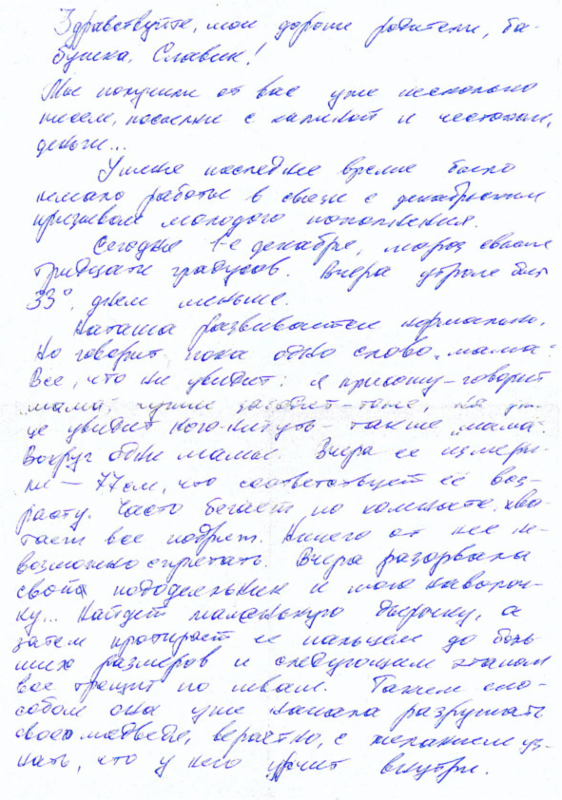 Здравствуйте, мои дорогие родители, ба-
бушка, Славик!
Мы получили от вас уже несколько
писем, посылки с калиной и чесноком,
деньги...
У меня последнее время было
немало работы в связи с декабрьским
призывом молодого пополнения.
Сегодня 1-е декабря, мороз свыше
тридцати градусов. Вчера утром был
33°, днём меньше.
Наташа развивается нормально.
Но говорит пока одно слово „мама".
Все, что ни увидит: я прихожу - говорит
мама, чужие заходят - тоже, на ули-
це увидит кого-нибудь - также „мама".
Вокруг одни мамы. Вчера ее измери-
ли - 77 см, что соответствует её воз-
расту. Часто бегает по комнате, хва-
тает все подряд. Ничего от нее не-
возможно спрятать. Вчера разорвала
свой пододеяльник и мою наволоч-
ку... Найдет маленькую дырочку, а
затем протирает ее пальцем до боль-
ших размеров и следующим этапом
все трещит по швам. Таким спо-
собом она уже начала разрушать
своего медведя, вероятно, с желанием уз-
нать, что у него урчит внутри.